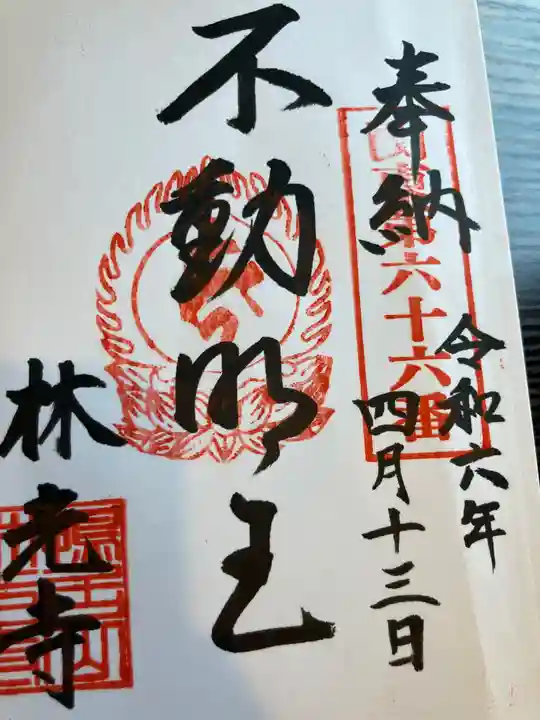 奉納
令和六年
四月十三日
第六十六番
不動明王
林光寺